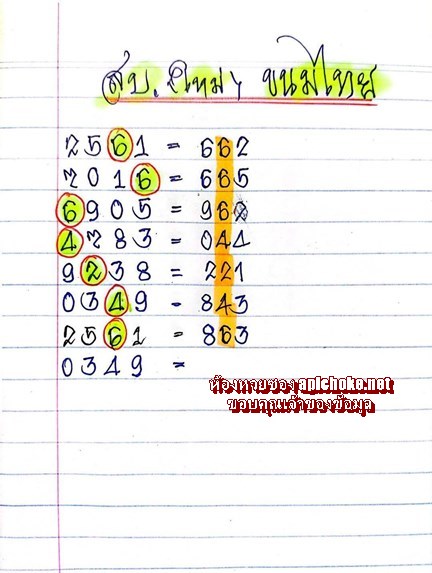 สบ. ใหม่ๆ ขนมไทย
2561 = 662
7016 = 665
6905 = 968
4783 = 044
9238 = 221
0349 - 843
2561 = 863
0349 =
ห้องหวยซอง aplchoke.net
ขอบคุณเจ้าของข้อมูล